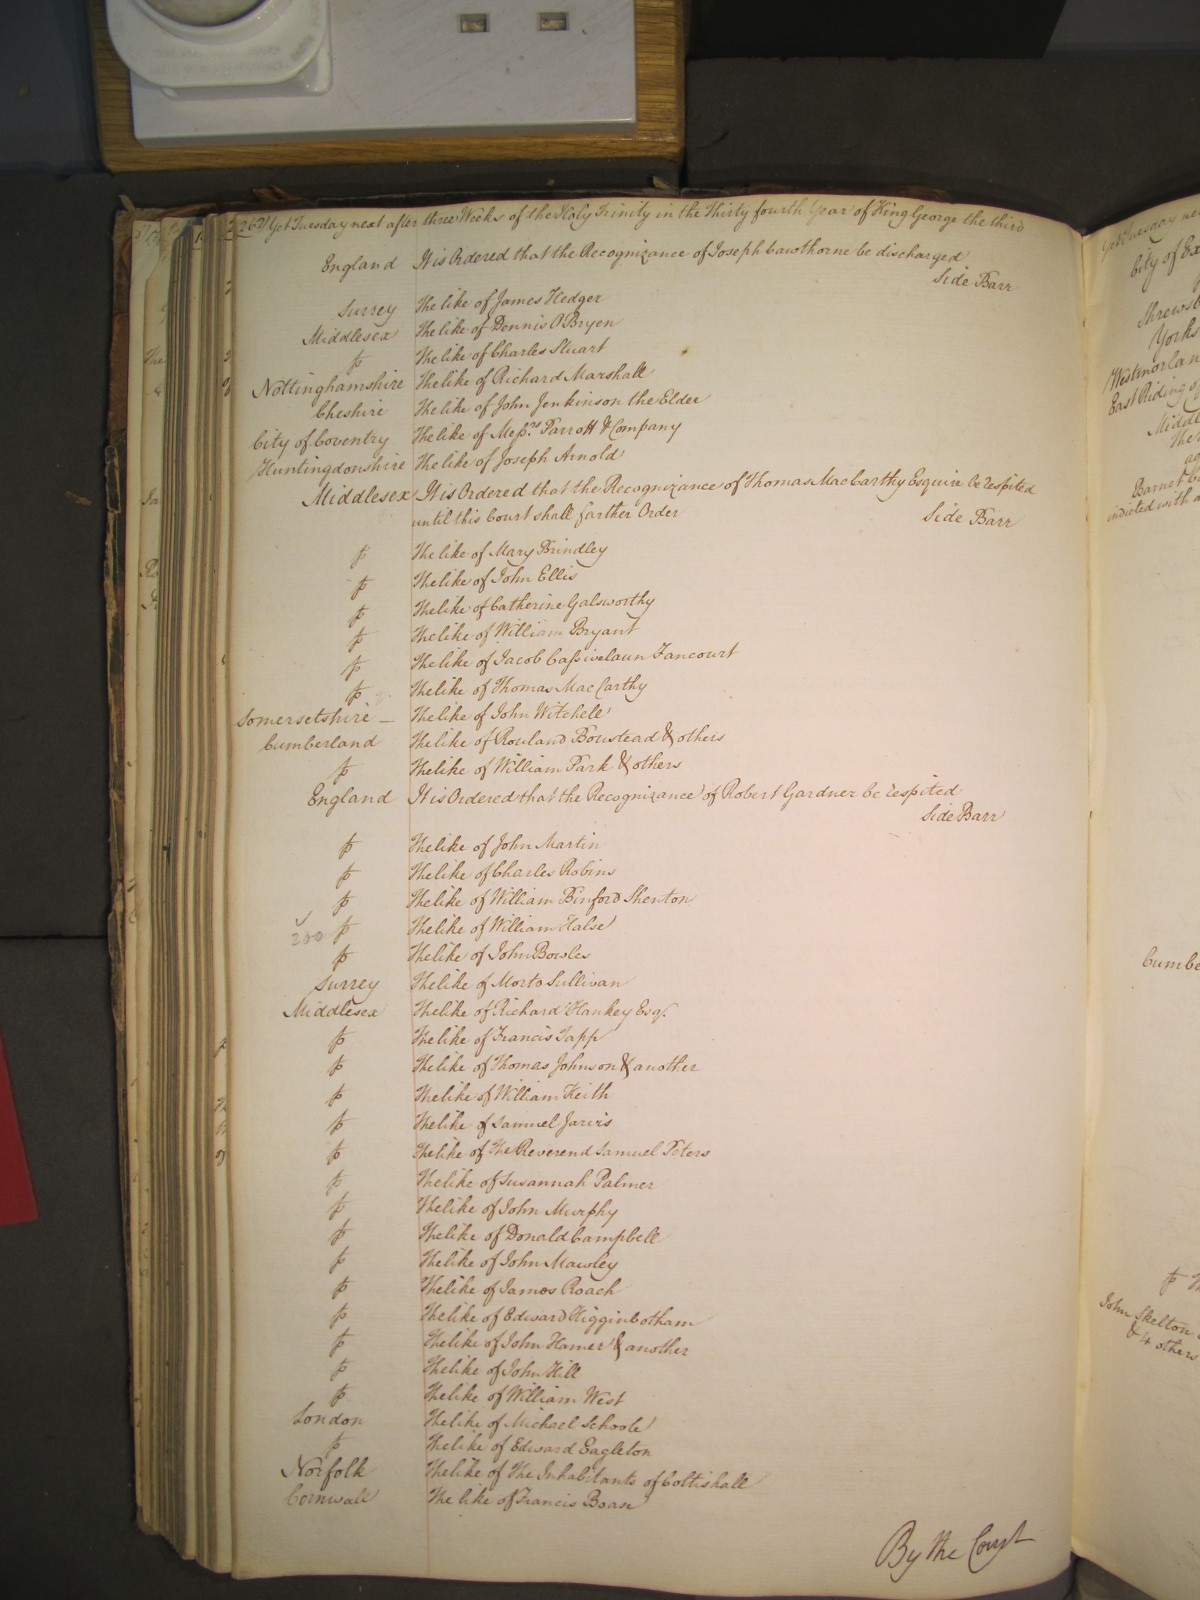 262 Yet Tuesday next after three Weeks of the Holy Trinity in the Thirty fourth Year of King George the third
England It is Ordered that the Recognizance of Joseph Cawthorne be discharged
Side Barr
Surrey The like of James Hedger
Middlesex The like of Dennis O Bryen
The like of Charles Stuart
Nottinghamshire The like of Richard Marshall
Cheshire The like of John Jenkinson the Elder
City of Coventry The like of Messrs. Parrott & Company
Huntingdonshire The like of Joseph Arnold
Middlesex It is Ordered that the Recognizance of Thomas Mac Carthy Esquire be respited
until this Court shall farther Order Side Barr
The like of Mary Brindley
The like of John Ellis
The like of Catherine Galsworthy
The like of William Bryant
The like of Jacob Cassivelaun Fancourt
The like of Thomas Mac Carthy
Somersetshire The like of John Witchell
Cumberland The like of Rowland Boustead & others
The like of William Park & others
England It is Ordered that the Recognizance of Robert Gardner be respited
Side Barr
The like of John Martin
The like of Charles Robins
The like of William Binford Shenton
200 The like of William Halse
The like of John Bowles
Surrey The like of Morto Sullivan
Middlesex The like of Richard Hankey Esqr.
The like of Francis Tapp
The like of Thomas Johnson & another
The like of William Keith
The like of Samuel Jarvis
The like of The Reverend Samuel Peters
The like of Susannah Palmer
The like of John Murphy
The like of Donald Campbell
The like of John Mawley
The like of James Roach
The like of Edward Higginbotham
The like of John Hamer & another
The like of John Hill
The like of William West
London The like of Michael Schoole
The like of Edward Eagleton
Norfolk The like of The Inhabitants of Coltishall
Cornwall The like of Francis Boase
By the Court
City of Ex
Shrewsb
Yorks
Westmorlan
East Riding o
Middl
Barnet
indicted with a
Cumbe
John Skelton
& 4 others